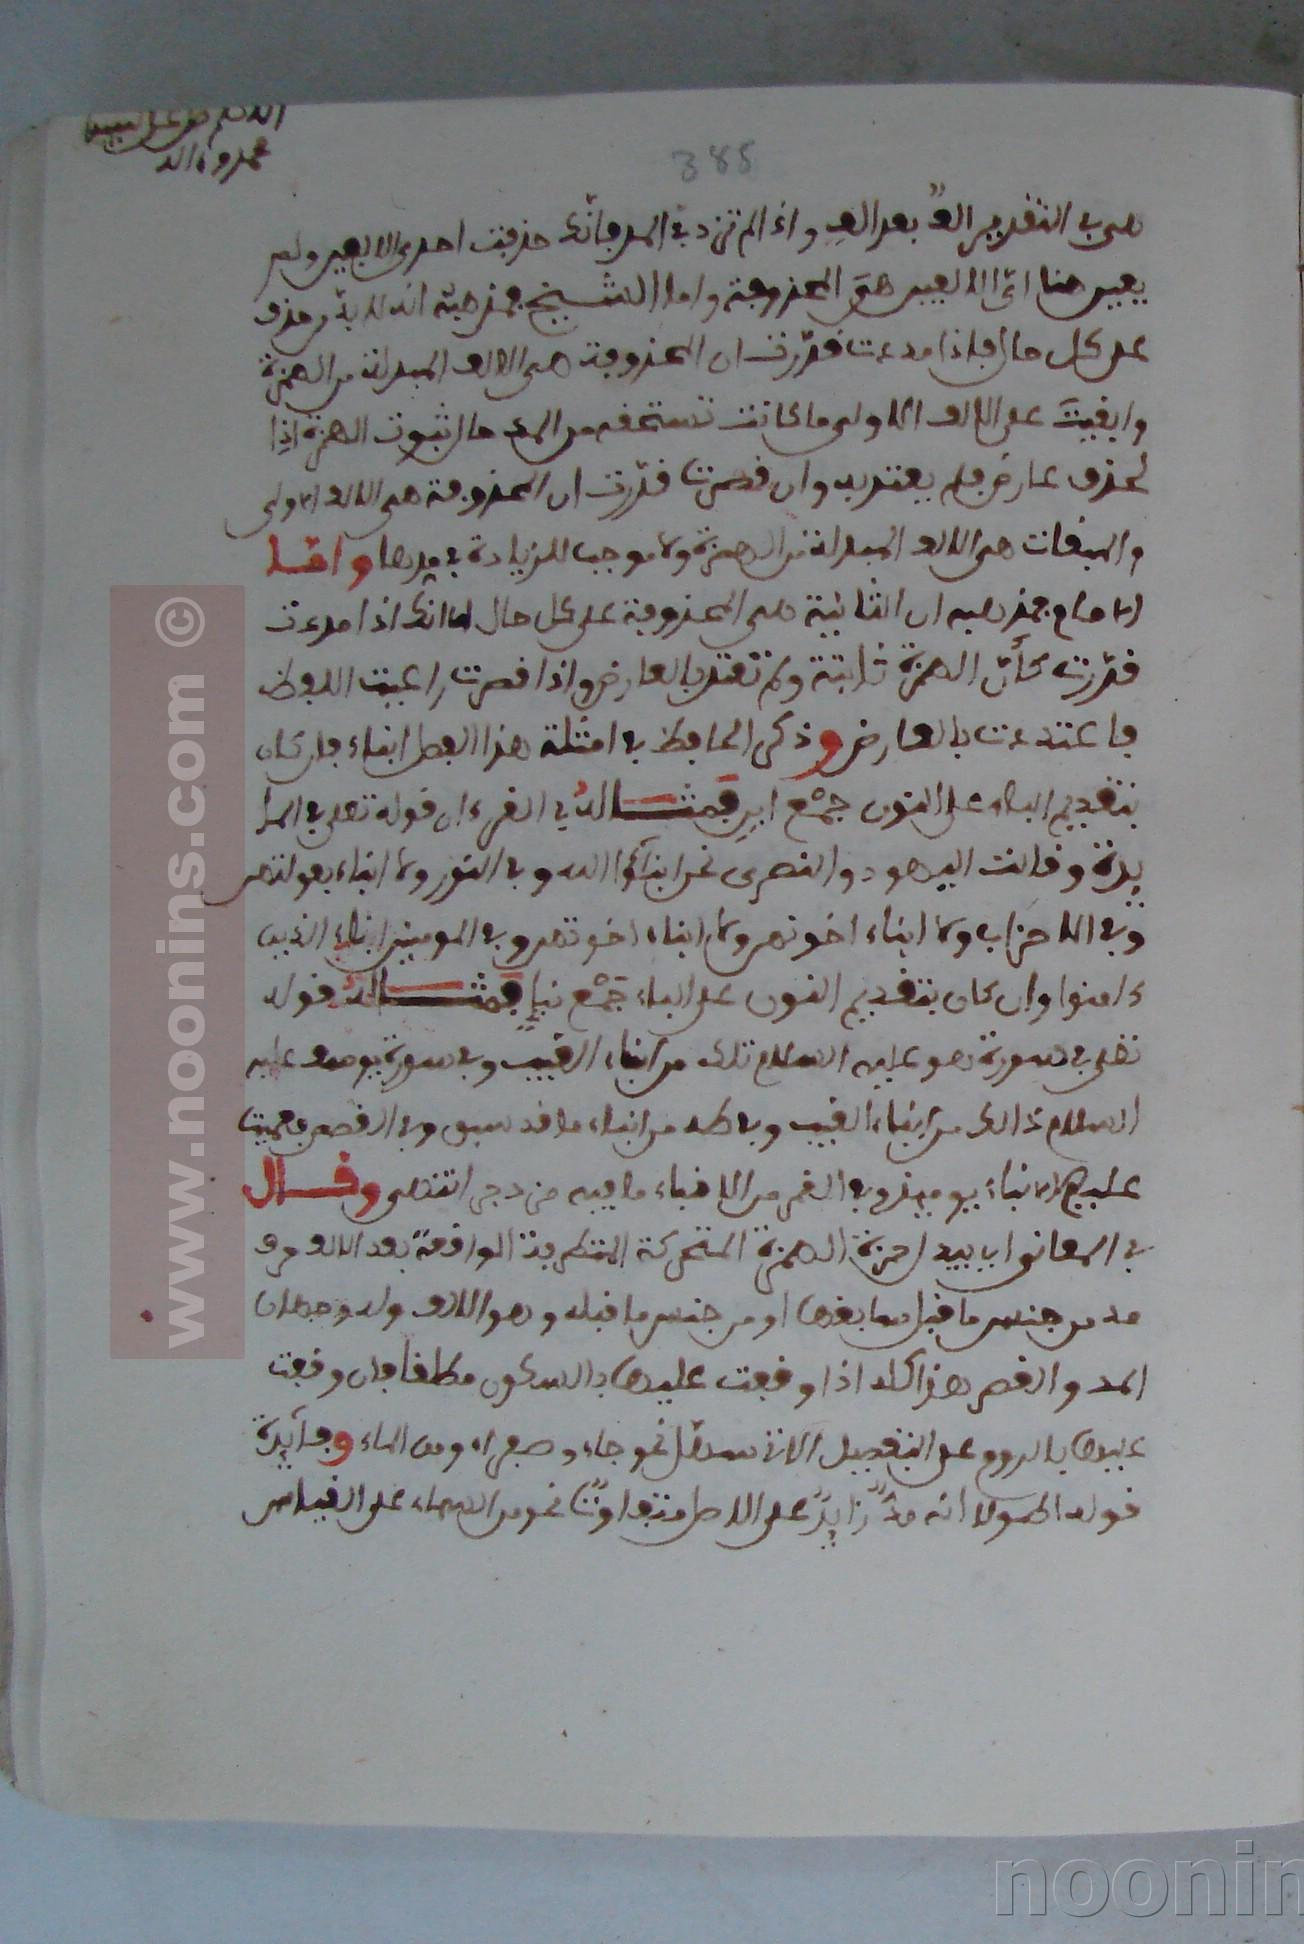 محمد وءاله
385
هي في التقدير الف بعد الف واذا لم تزد في المد فانك حذفت احدى الالفين ولم
يعين هنا اي الالفين هي المحذوفة واما الشيخ فمذهبه انه لا بد من حذف
على كل حال فاذا مددت قدرت ان المحذوفة هي الالف المبدلة من الهمزة
وابقيت على الالف الاولى ما كانت تستحقه من المد حال ثبوت الهمزة اذا
لحذف عارض فلم يعتد به وان قصرت قدرت ان المحذوفة هي الالف الاولى
والمبقات هي الالف المبدلة من الهمزة ولا موجب للزيادة في مدها واما
الامام فمذهبه ان الثانية هي المحذوفة على كل حال الا انك اذا مددت
قدرت كأن الهمزة ثابتة ولم تعتد بالعارض واذا قصرت راعيت اللفظ
فاعتددت بالعارض وذكر الحافظ في امثلة هذا الفصل ابناء فان كان
بتقديم الباء على النون جمع ابن فمثاله في القرءان قوله تعلى في الما
يدة وقالت اليهود والنصرى نحن ابنؤا الله وفي النور ولا ابناء بعولتهن
وفي الاحزاب ولا ابناء اخوتهن ولا ابناء اخوتهن وفي المومنين ابناء الذين
ءامنوا وان كان بتقديم النون على الباء جمع نبإ فمثاله قوله
تعلى في سورة هو عليه السلام تلك من انباء الغيب وفي سورة يوسف عليه
السلام ذالك من انباء الغيب وفي طه من انباء ما قد سبق وفي القصص فعميت
عليهم الانباء يوميذ وفي القمر من الانباء ما فيه مزدجر انتهى وقال
في المعاني ابابيد ل حمزة الهمزة المتحركة المتطرفة الواقعة بعد الالف حرف
مد من جنس ما قبل سابقها او من جنس ما قبله وهو الالف وله وجهان
المد والقصر هذا كله اذا وقفت عليها بالسكون مطلقا فان وقفت
عليها بالروم على التفصيل الاتي سهل نحو جاء وصفراء ومن الماء وفايدة
قوله اطولا انه مد زايد على الاصل متفاوتا نحو من السماء على القياس
www.noonins.com ©
noonin